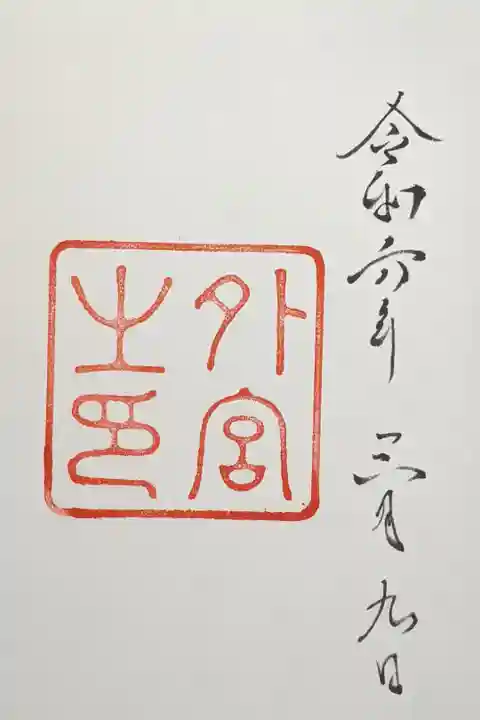 令和六年 三月 九日
外宮
之印